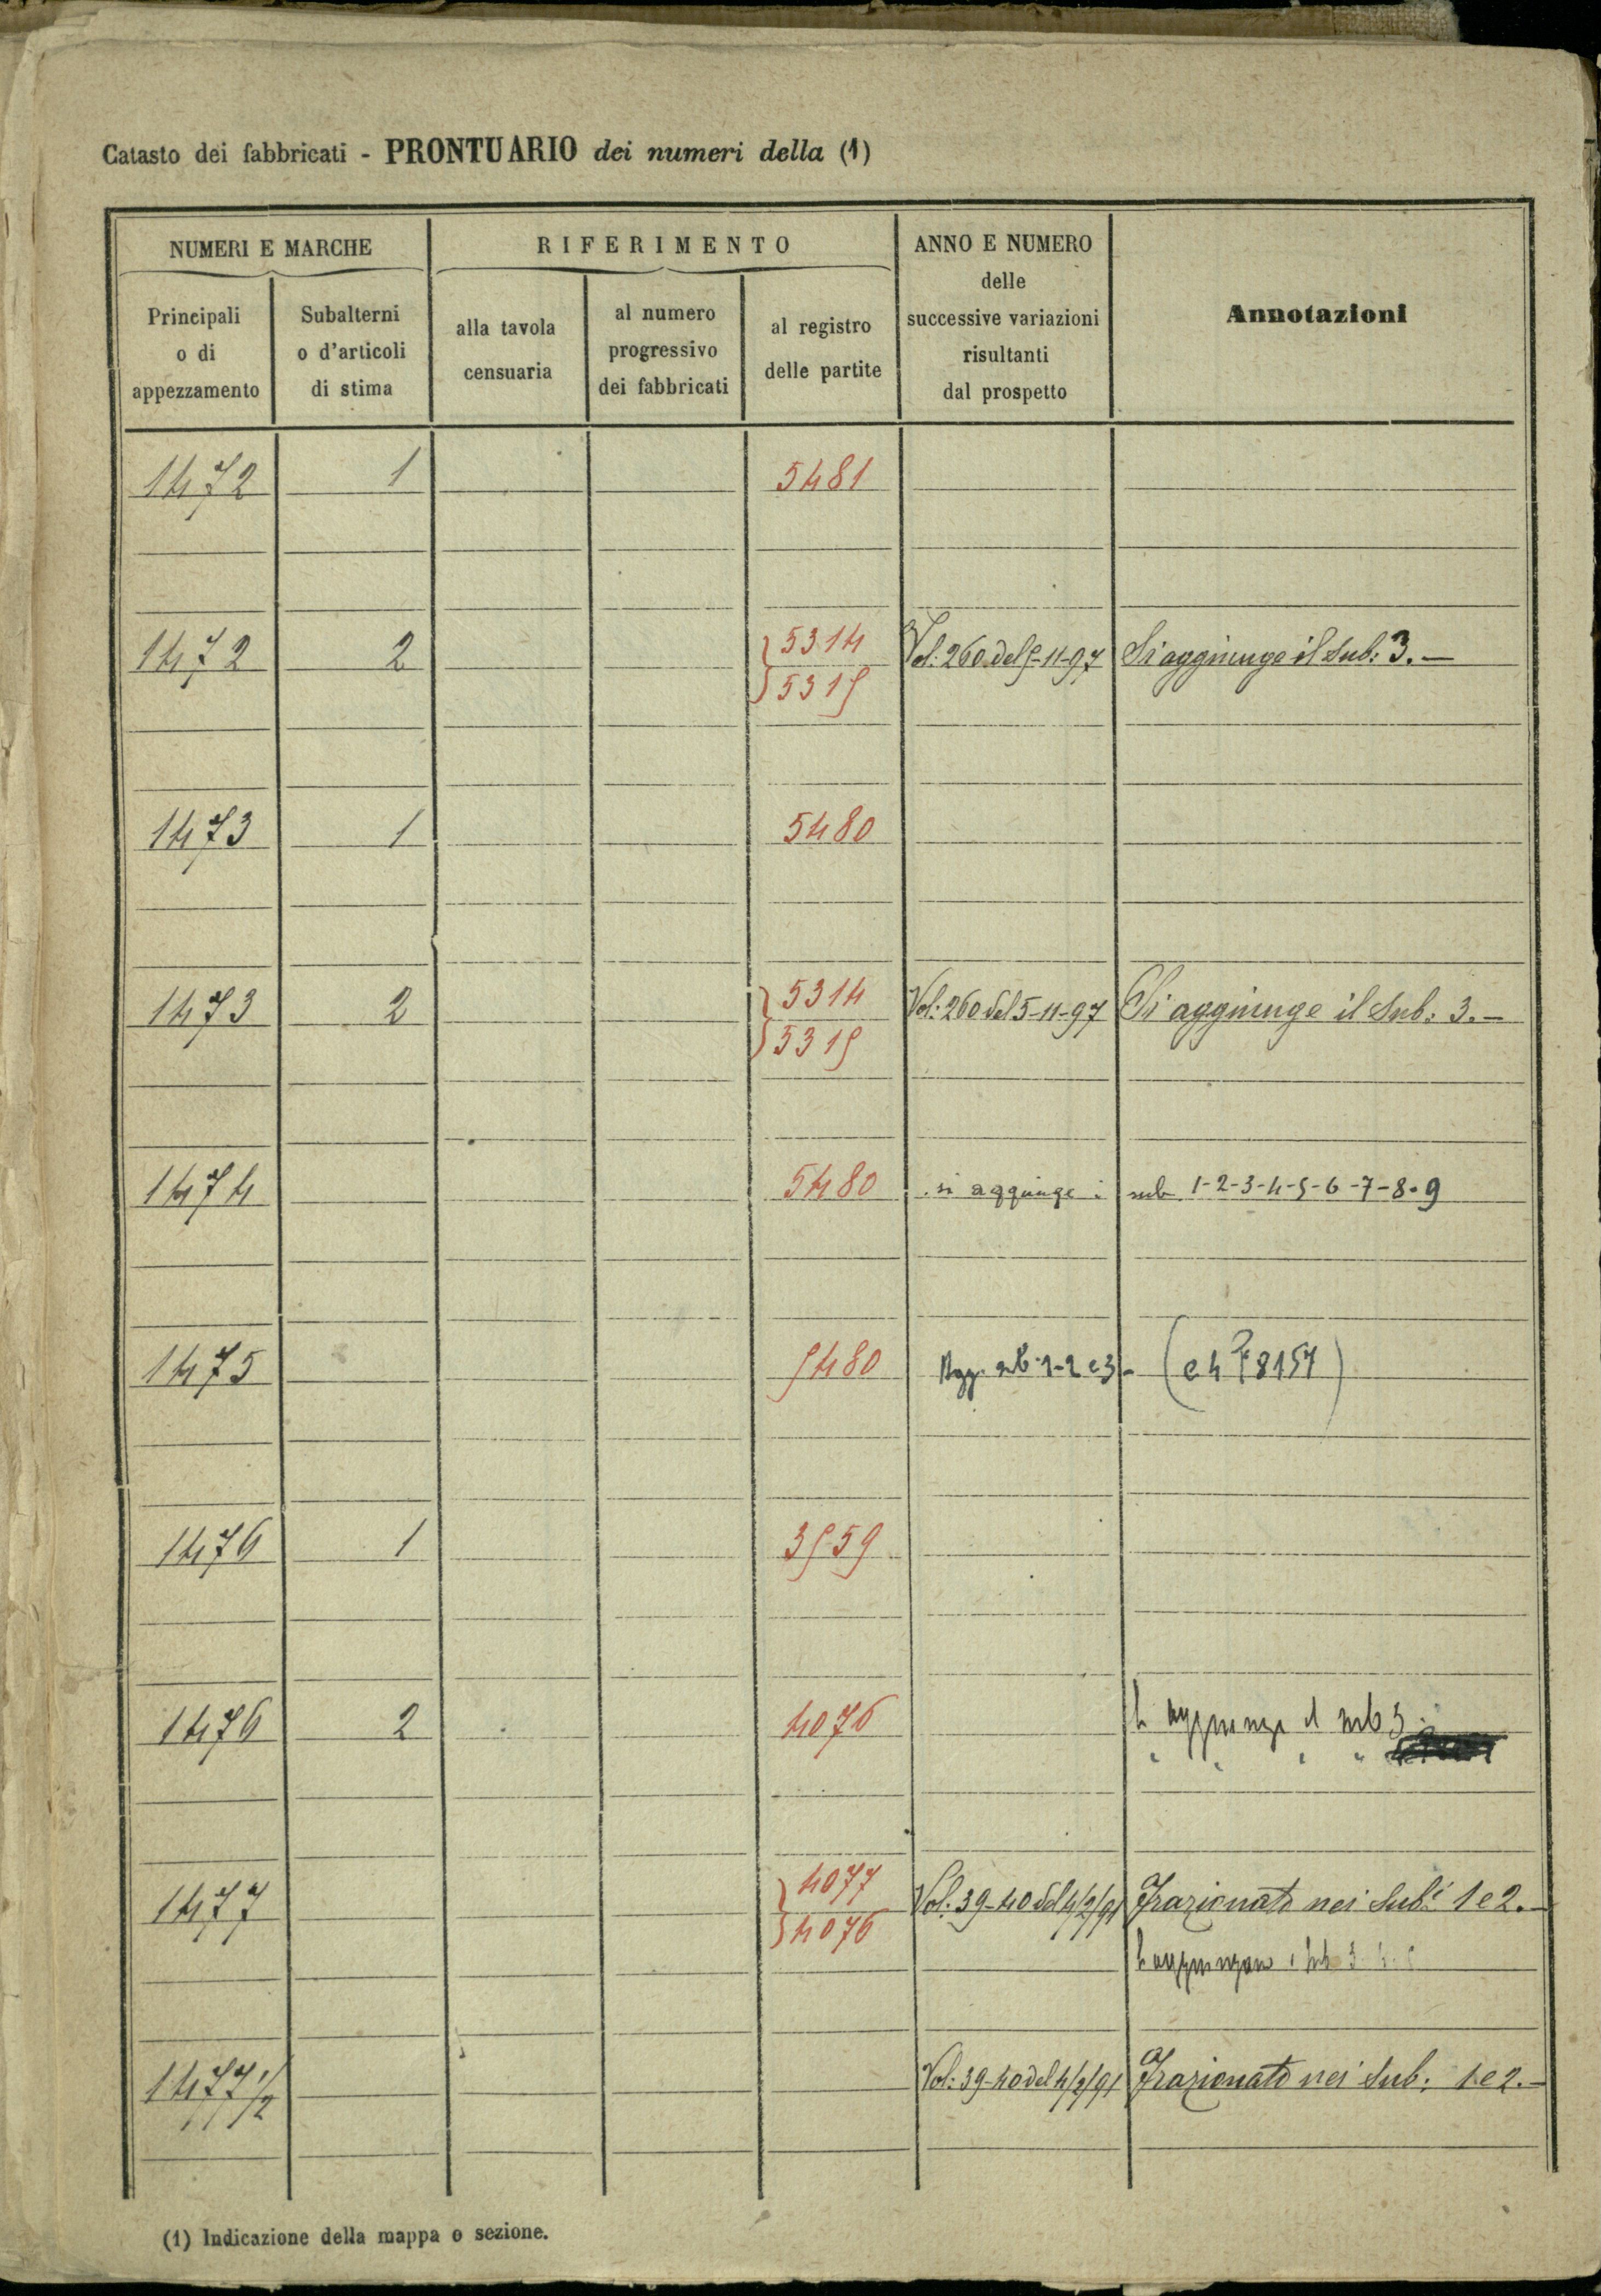 Catasto dei fabbricati - PRONTUARIO dei numeri della (1)
NUMERI E MARCHE
RIFERIMENTO
ANNO E NUMERO
delle
successive variazioni
risultanti
dal prospetto
Annotazioni
Principali
o di
appezzamento
Subalterni
o d'articoli
di stima
alla tavola
censuaria
al numero
progressivo
dei fabbricati
al registro
delle partite
1472 1 5481
1472 2 5314 Vol: 260 del 5-11-97 Si aggiunge il Sub: 3.—
5315
1473 1 5480
1473 2 5314 Vol: 260 del 5-11-97 Si aggiunge il Sub: 3.—
5315
1474 5480 si aggiunge i sub 1-2-3-4-5-6-7-8-9
1475 5480 Agg. sub. 1-2 e 3 - (e 4 P 8157)
1476 1 3559
1476 2 4076 Si aggiunge il sub 3.
" " " "
1477 4077 Vol: 39-40 del 4/2/91 Frazionato nei Subi 1 e 2.—
4076
Si aggiungono i sub 3
1477 1/2 Vol: 39-40 del 4/2/91 Frazionato nei Sub: 1 e 2.—
(1) Indicazione della mappa o sezione.